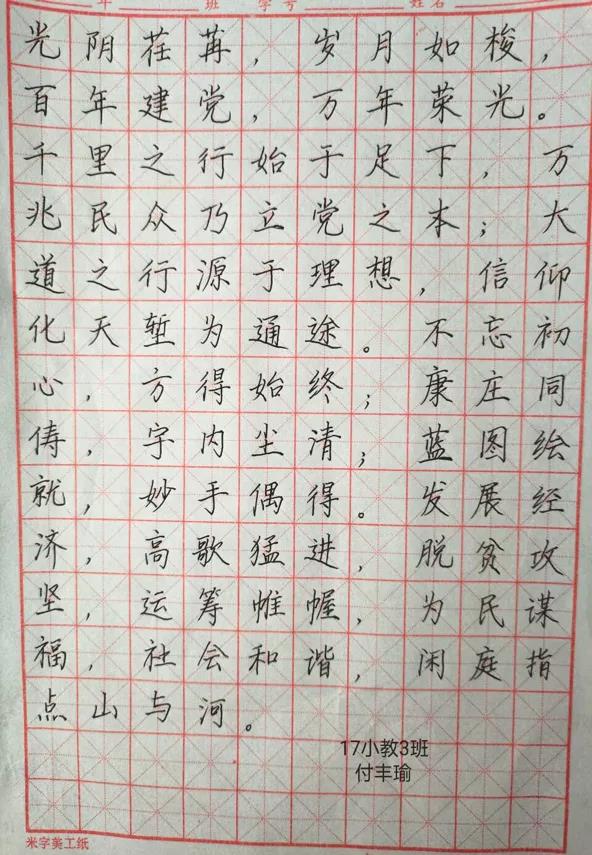 年 班 学号 姓名
光阴荏苒，岁月如梭，
百年建党，万年荣光。
千里之行始于足下，万
兆民众乃立党之本；大
道之行源于理想，信仰
化天堑为通途。不忘初
心，方得始终；康庄同
俦，宇内尘清；蓝图绘
就，妙手偶得。发展经
济，高歌猛进，脱贫攻
坚，运筹帷幄，为民谋
福，社会和谐，闲庭指
点山与河。
17小教3班
付丰瑜
米字美工纸